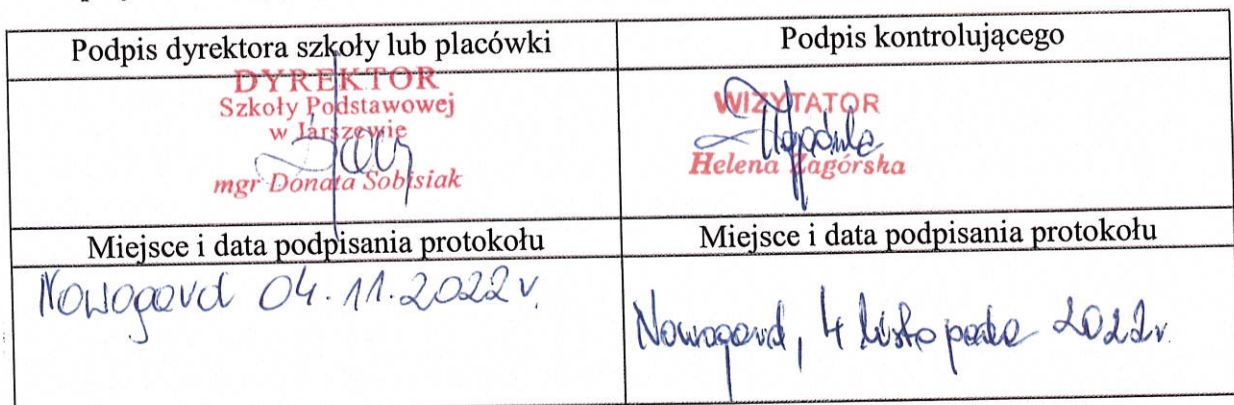 Podpis dyrektora szkoły lub placówki
Podpis kontrolującego
DYREKTOR
Szkoły Podstawowej
w Jarszewie
mgr Donata Sobisiak
WIZYTATOR
Helena Zagórska
Miejsce i data podpisania protokołu
Miejsce i data podpisania protokołu
Nowogard 04.11.2022 r.
Nowogard, 4 listopada 2022r.